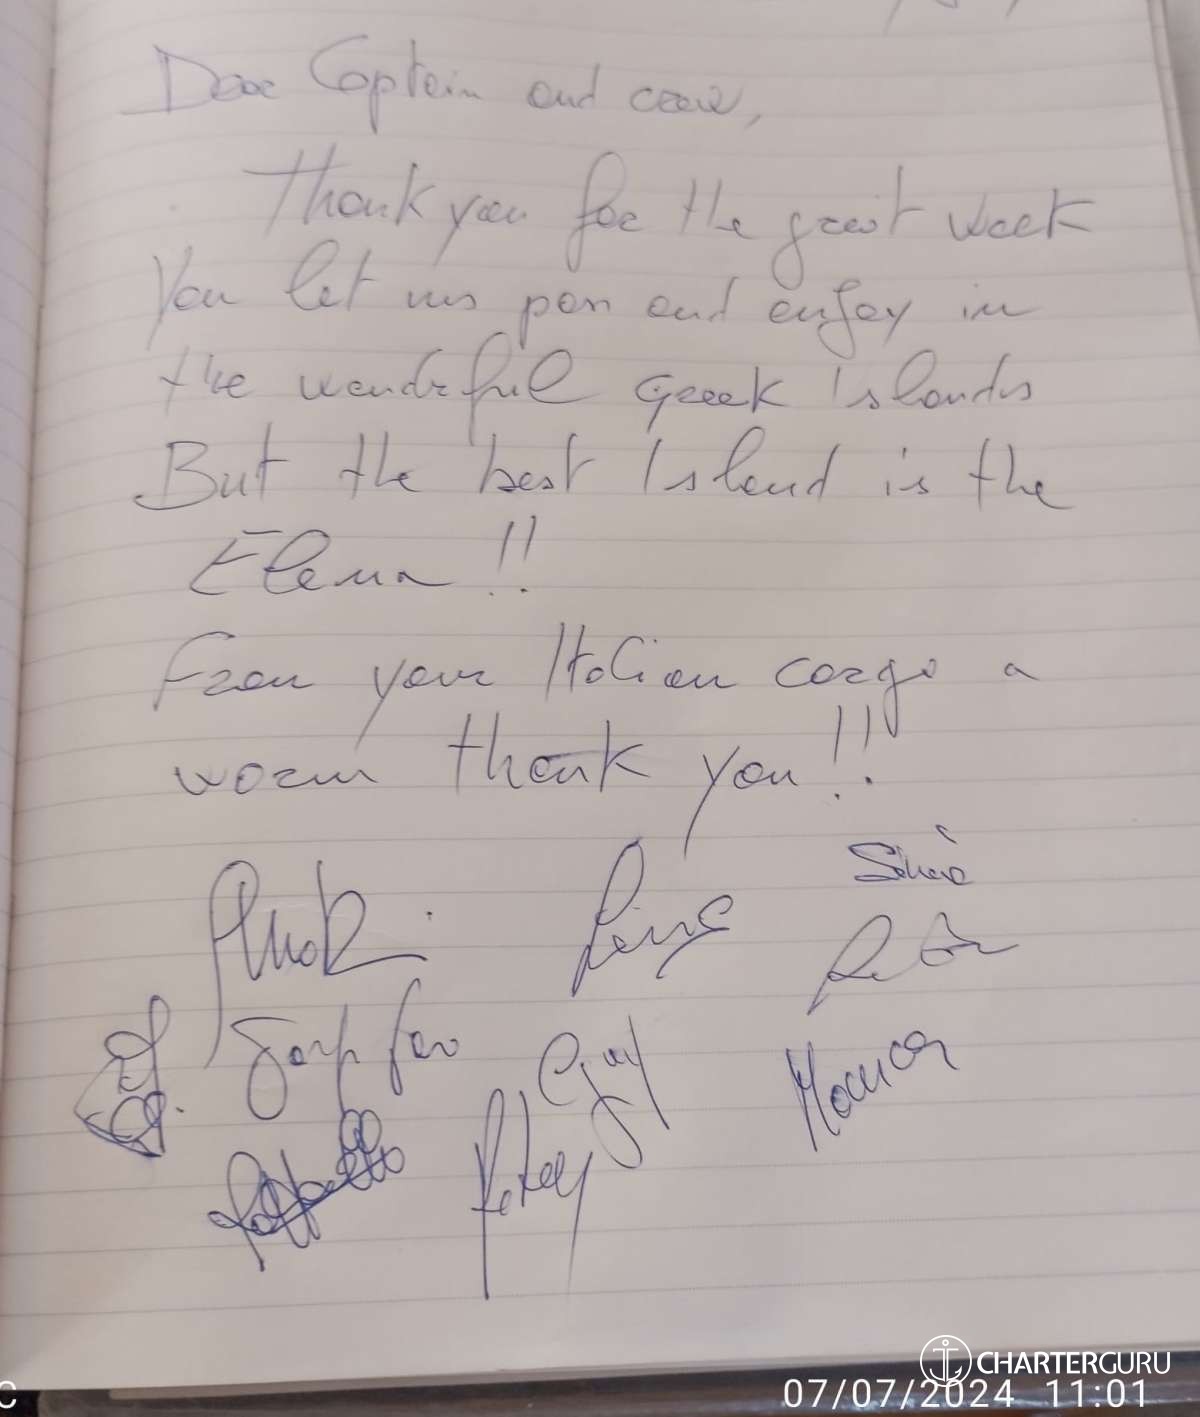 Dear Captain and crew,
Thank you for the great week
You let us pass and enjoy in
the wonderful Greek Islands
But the best Island is the
Elena!!
From your Italian cargo a
warm thank you!!
Monica
Raffaello
CHARTERGURU
07/07/2024 11:01